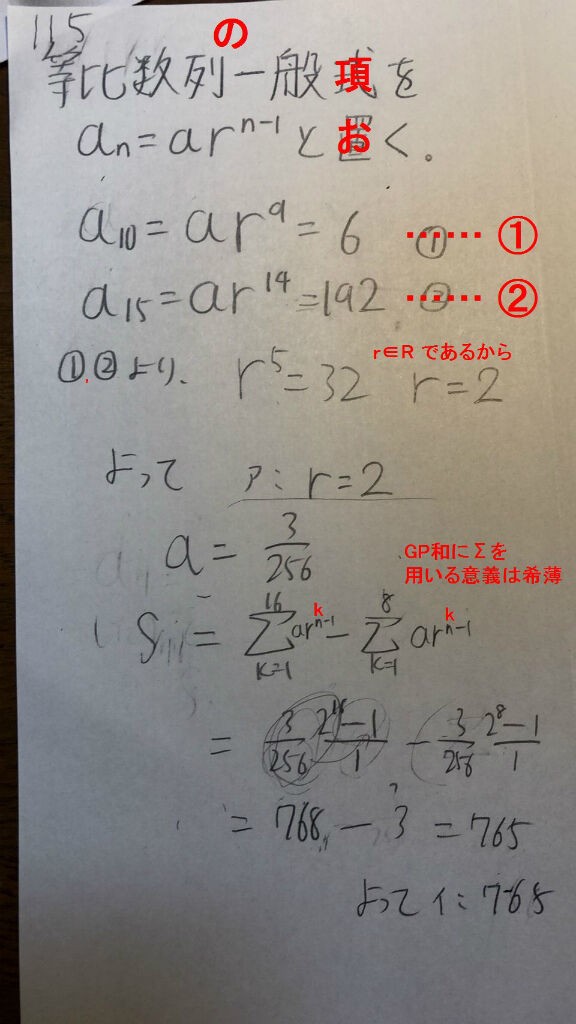 115
等比数列の一般項を
aₙ=arⁿ⁻¹とおく。
a₁₀=ar⁹=6 …… ①
a₁₅=ar¹⁴=192 …… ②
①,②より、 r⁵=32 r∈R であるから r=2
よって ア: r=2
a= 3/256
GP和にΣを
用いる意義は希薄
S = Σ[k=1→16] arᵏ⁻¹ - Σ[k=1→8] arᵏ⁻¹
= 3/256 (2¹⁶-1)/1 - 3/256 (2⁸-1)/1
= 768 - 3 = 765
よって イ: 765